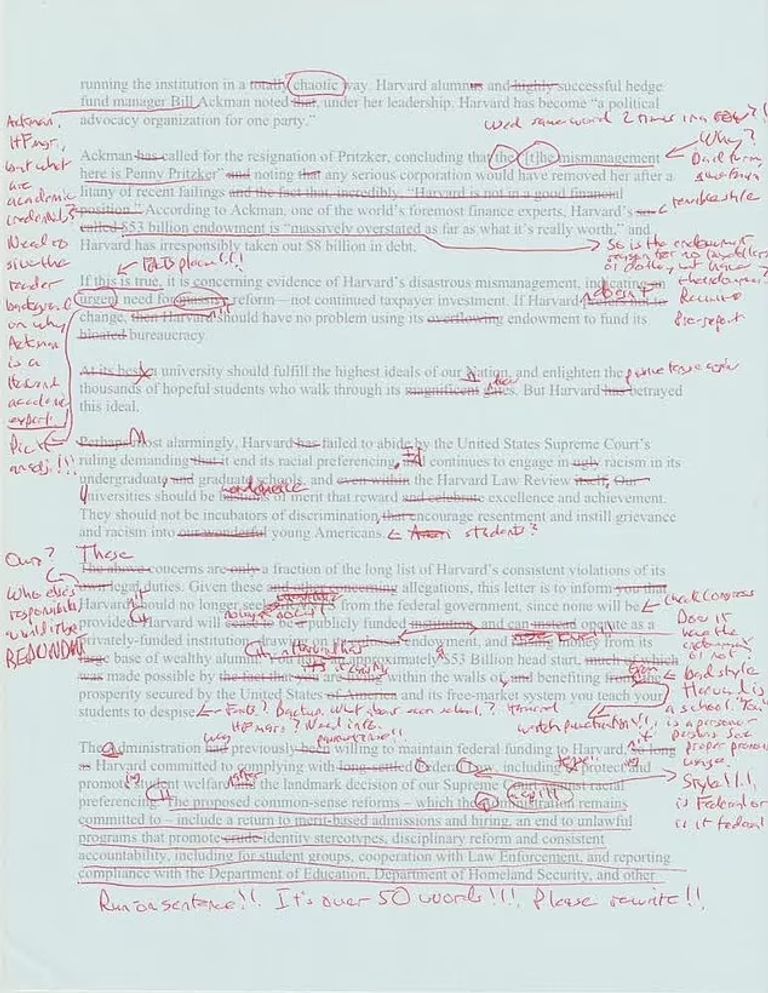 running the institution in a totally chaotic way. Harvard alumnus and highly successful hedge
fund manager Bill Ackman noted that, under her leadership. Harvard has become “a political
advocacy organization for one party.”
Used same word 2 times in a row?!
Ackman,
HF mgr,
but what
are
academic
credentials?
Need to
give the
reader
background
on why
Ackman
is a
Harvard
academic
expert!
Ackman has called for the resignation of Pritzker, concluding that the [t]he mismanagement
here is Penny Pritzker” and noting that any serious corporation would have removed her after a
litany of recent failings and the fact that, incredibly, “Harvard is not in a good financial
position.” According to Ackman, one of the world’s foremost finance experts, Harvard’s so-
called $53 billion endowment is “massively overstated as far as what it’s really worth.” and
Harvard has irresponsibly taken out $8 billion in debt.
Why?
terrible style
So is the endowment
FACTS please!!!
If this is true, it is concerning evidence of Harvard’s disastrous mismanagement, indicating an
urgent need for massive reform – not continued taxpayer investment. If Harvard
change, then Harvard should have no problem using its overflowing endowment to fund its
bloated bureaucracy.
Pick
an adj.!!!
At its best, a university should fulfill the highest ideals of our Nation, and enlighten the
thousands of hopeful students who walk through its magnificent gates. But Harvard has betrayed
this ideal.
Perhaps most alarmingly, Harvard has failed to abide by the United States Supreme Court’s
ruling demanding that it end its racial preferencing, continues to engage in ugly racism in its
undergraduate and graduate schools, and even within the Harvard Law Review itself. Our
universities should be of merit that reward and celebrate excellence and achievement.
They should not be incubators of discrimination, that encourage resentment and instill grievance
and racism into our wonderful young Americans. students?
These
The above concerns are only a fraction of the long list of Harvard’s consistent violations of its
own legal duties. Given these and other concerning allegations, this letter is to inform you that
Harvard should no longer seek from the federal government, since none will be
provided. Harvard will publicly funded institution, and can instead operate as a
privately-funded institution, drawing on endowment, and raising money from its
large base of wealthy alumni. approximately $53 Billion head start, much of which
was made possible by the fact that you are living within the walls of, and benefiting from, the
prosperity secured by the United States of America and its free-market system you teach your
students to despise.
Ours?
Who else’s
responsibility
would it be
REDUNDANT
check Congress
Does it
have the
endowment
or not
bad style
Harvard is
a school. “You”
is a person
proper pronoun
usage.
watch punctuation!!!
The Administration had previously been willing to maintain federal funding to Harvard, so long
as Harvard committed to complying with long-settled Federal Law, including protect and
promote student welfare and the landmark decision of our Supreme Court against racial
preferencing. The proposed common-sense reforms – which the administration remains
committed to – include a return to merit-based admissions and hiring, an end to unlawful
programs that promote crude identity stereotypes, disciplinary reform and consistent
accountability, including for student groups, cooperation with Law Enforcement, and reporting
compliance with the Department of Education, Department of Homeland Security, and other
Style!!!
is Federal or
is it federal
Run on sentence!!! It’s over 50 words!!!. Please rewrite!!